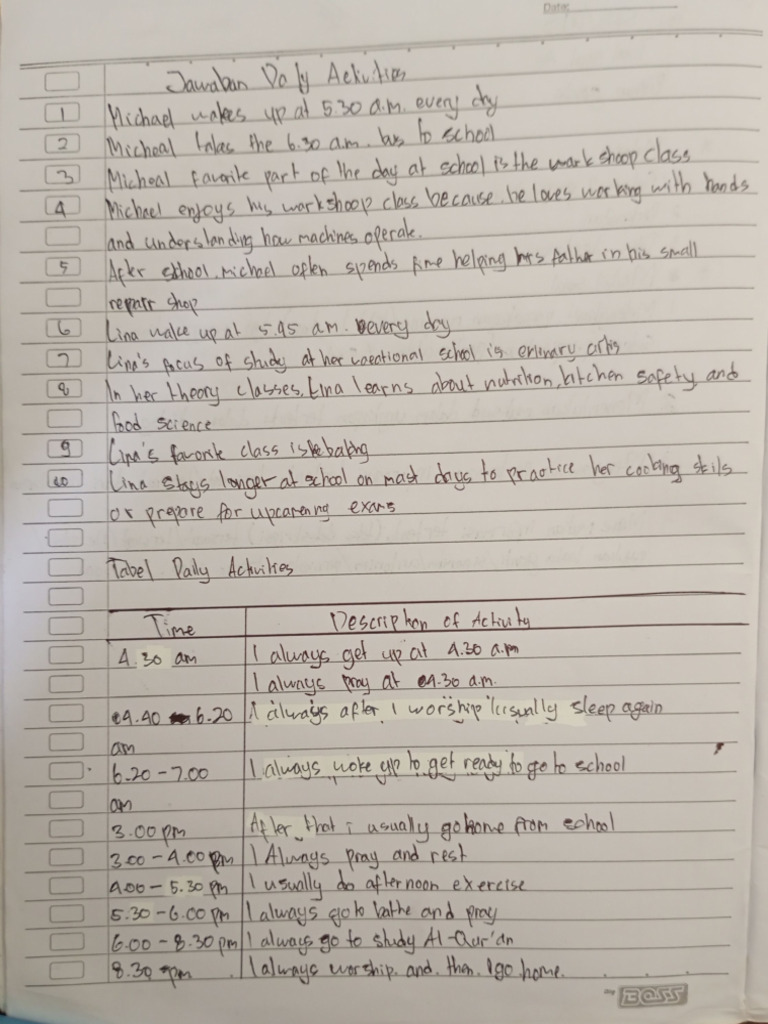 Date:
Jawaban Daily Activities
1 Michael wakes up at 5.30 a.m. every dry
2 Micheal takes the 6.30 a.m. bus to school
3 Micheal favorite part of the day at school is the workshoop class
4 Michael enjoys his workshoop class because he loves working with hands
and understanding how machines operate.
5 After school, michael often spends time helping his father in his small
repair shop
6 Lina wake up at 5.45 am. every dry
7 Lina's focus of study at her vocational school is
8 In her theory classes, Lina learns about nutrition, kitchen safety, and
food science
9 Lina's favorite class is
10 Lina stays longer at school on mast days to practice her cooking skils
or prepare for exams
Tabel Daily Activities
Time Description of Activity
4.30 am I always get up at 4.30 a.m
I always pray at 4.30 a.m.
4.40 - 6.20 I always after I worship usually sleep again
am
6.20 - 7.00 I always woke up to get ready to go to school
am
3.00 pm After that i usually go home from school
3.00 - 4.00 pm I Always pray and rest
4.00 - 5.30 pm I usually do afternoon exercise
5.30 - 6.00 pm I always go to bathe and pray
6.00 - 8.30 pm I always go to study Al-Qur'an
8.30 pm I always worship and then I go home.
BOSS